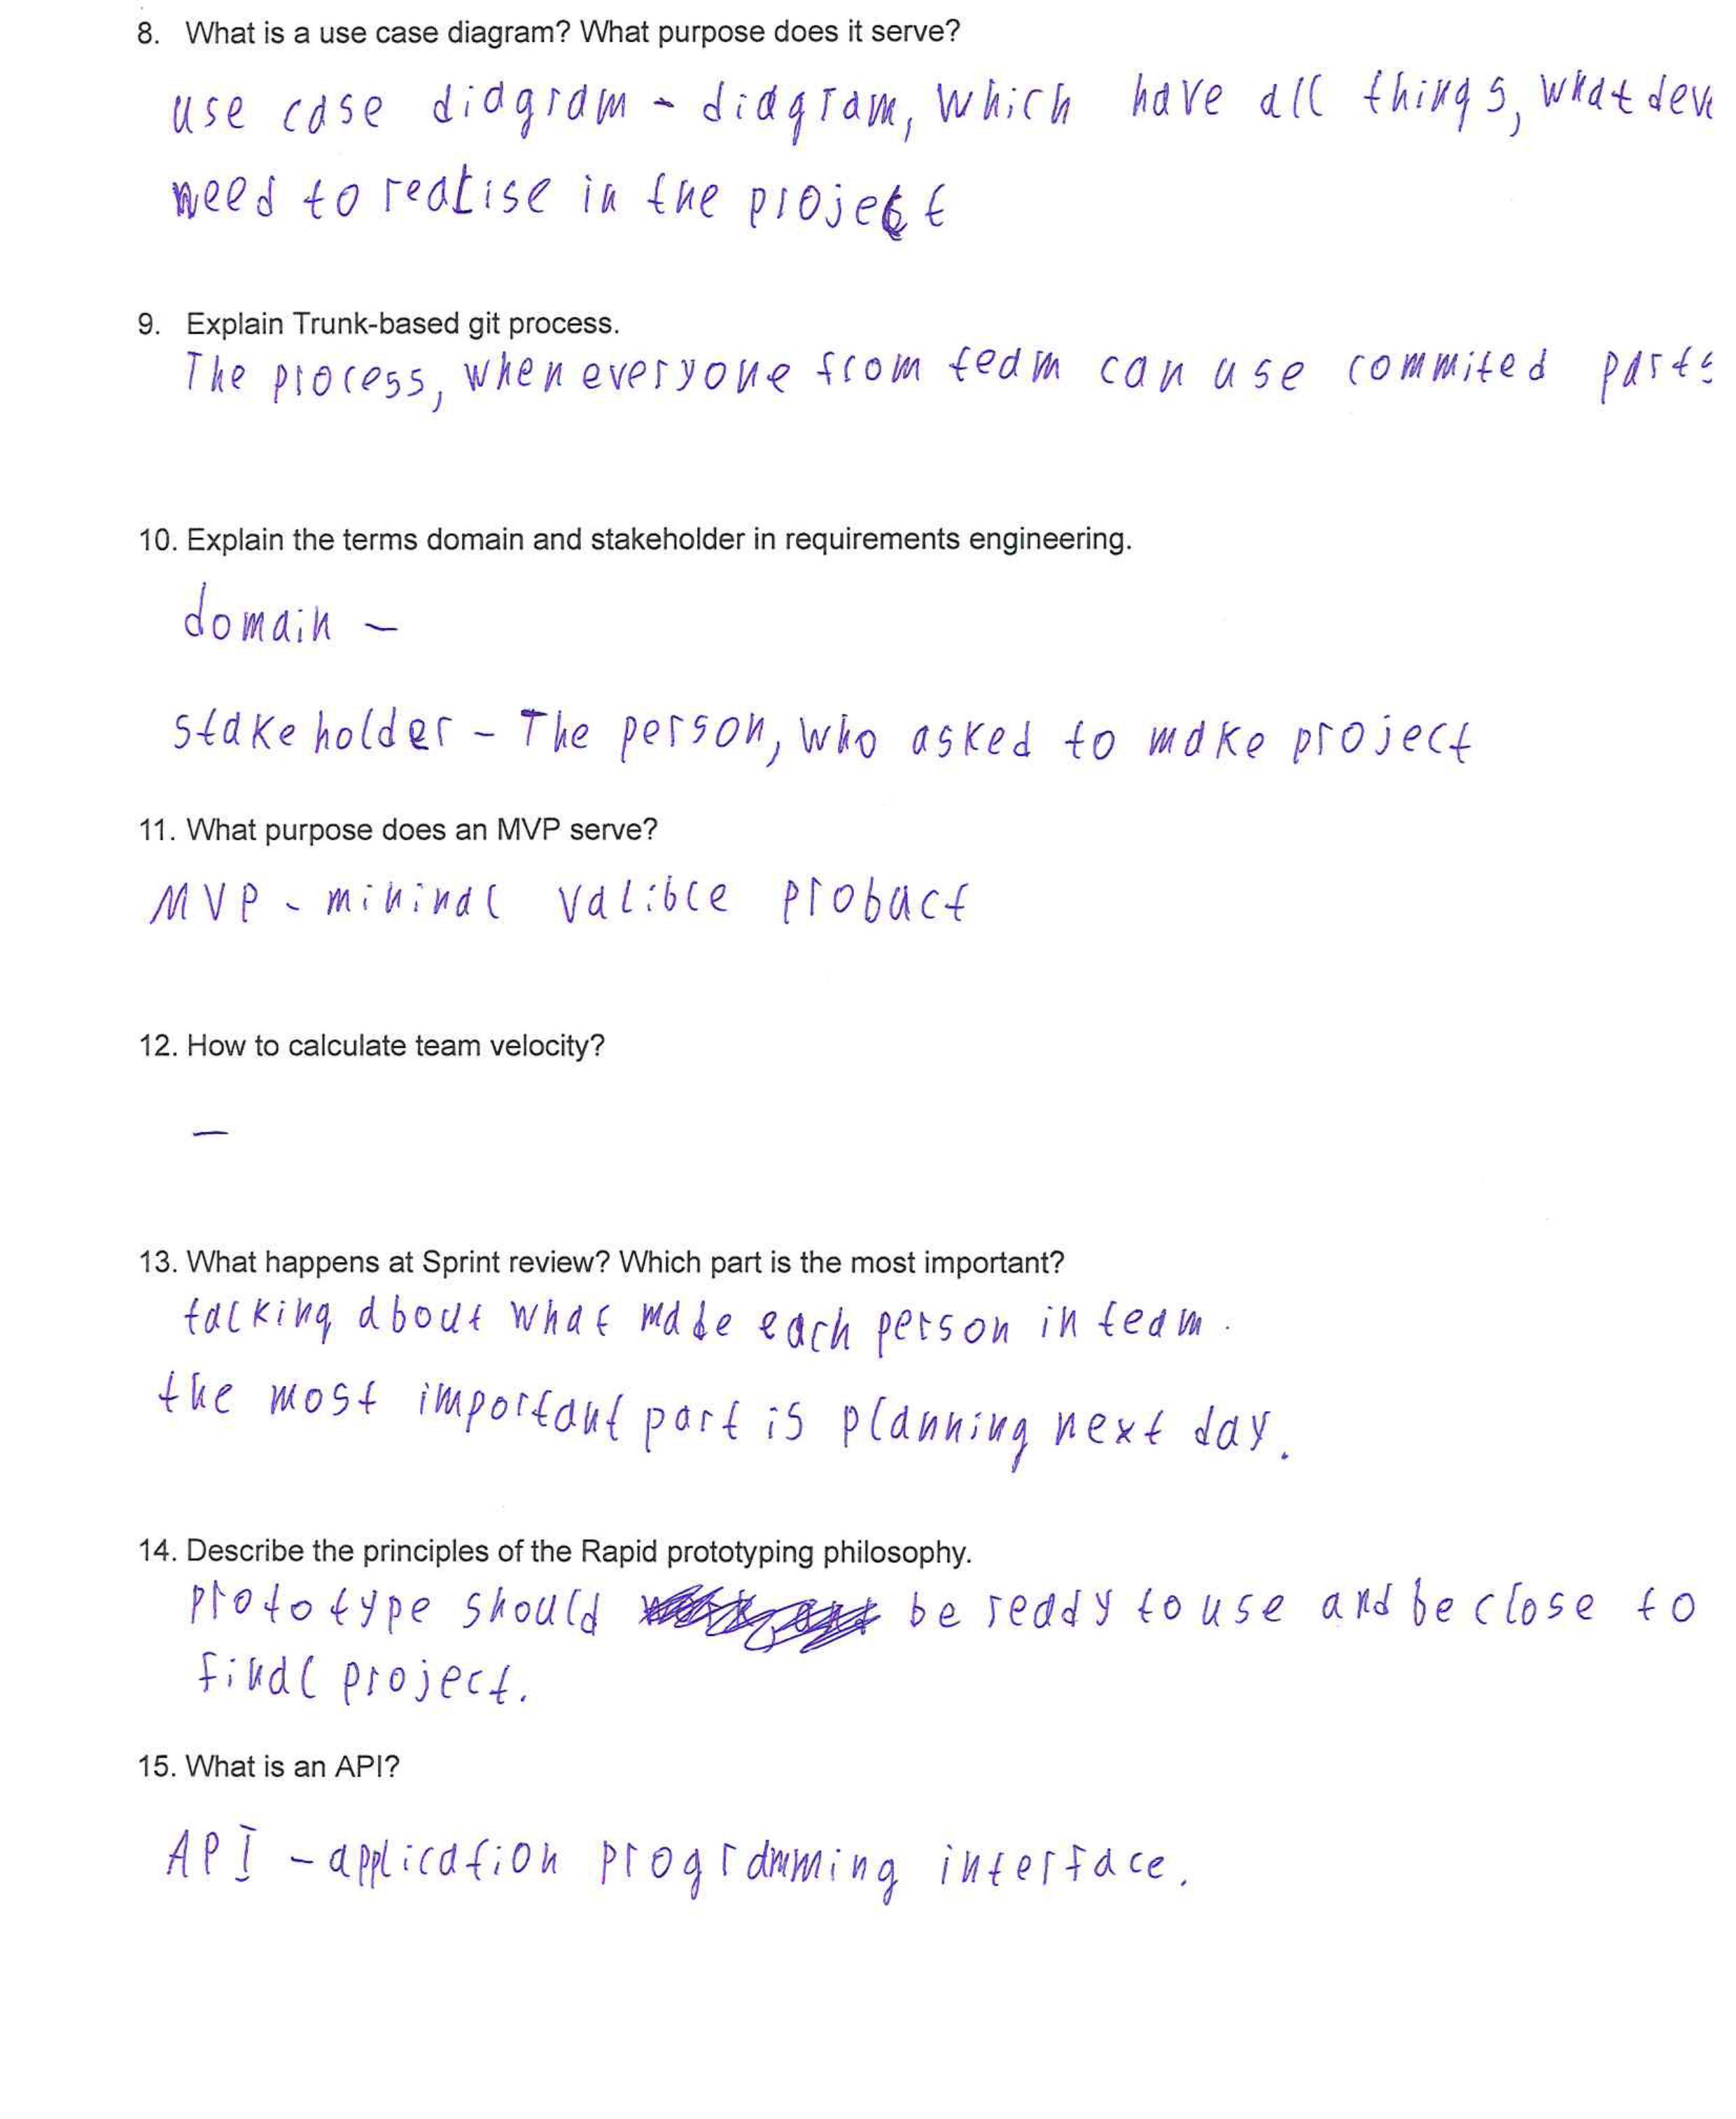 8. What is a use case diagram? What purpose does it serve?
use case diagram - diagram, which have all things, what dev
need to realise in the project
9. Explain Trunk-based git process.
The process, when everyone from team can use commited parts
10. Explain the terms domain and stakeholder in requirements engineering.
domain -
stakeholder - The person, who asked to make project
11. What purpose does an MVP serve?
MVP - mininal valible probuct
12. How to calculate team velocity?
-
13. What happens at Sprint review? Which part is the most important?
talking about what made each person in team.
the most important part is planning next day.
14. Describe the principles of the Rapid prototyping philosophy.
prototype should be ready to use and be close to
final project.
15. What is an API?
API - application programming interface.